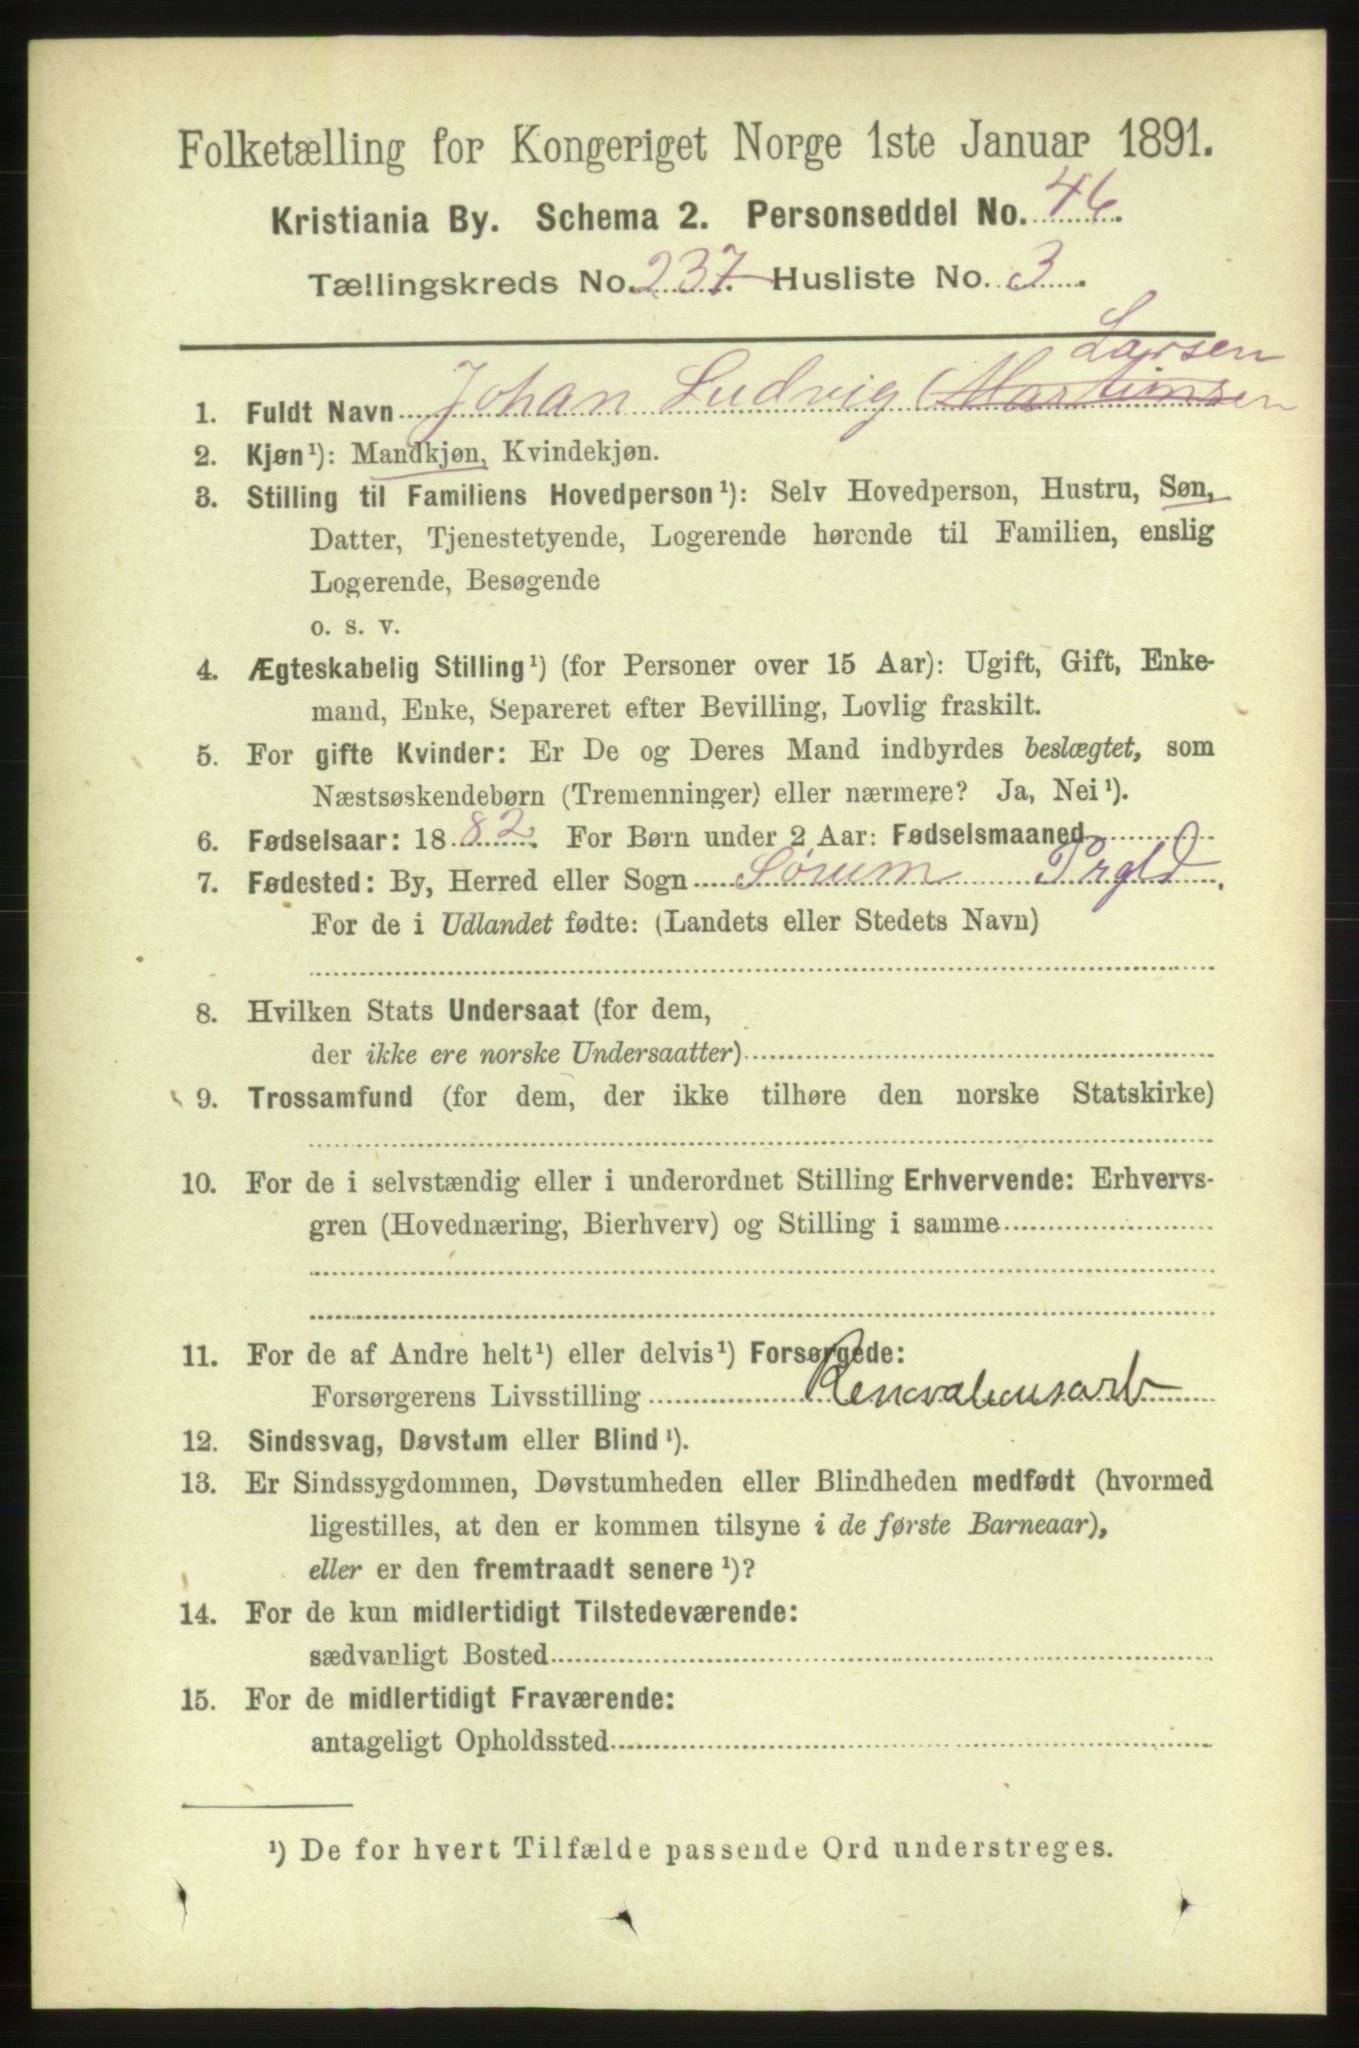 Folketælling for Kongeriget Norge 1ste Januar 1891.
Kristiania By. Schema 2. Personseddel No. 46.
Tællingskreds No. 237. Husliste No. 3.
Larsen
1. Fuldt Navn Johan Ludvig Martinsen
2. Kjøn¹): Mandkjøn, Kvindekjøn.
3. Stilling til Familiens Hovedperson¹): Selv Hovedperson, Hustru, Søn,
Datter, Tjenestetyende, Logerende hørende til Familien, enslig
Logerende, Besøgende
o. s. v.
4. Ægteskabelig Stilling¹) (for Personer over 15 Aar): Ugift, Gift, Enke-
mand, Enke, Separeret efter Bevilling, Lovlig fraskilt.
5. For gifte Kvinder: Er De og Deres Mand indbyrdes beslægtet, som
Næstsøskendebørn (Tremenninger) eller nærmere? Ja, Nei¹).
6. Fødselsaar: 1882. For Børn under 2 Aar: Fødselsmaaned
7. Fødested: By, Herred eller Sogn Sørum Prgld.
For de i Udlandet fødte: (Landets eller Stedets Navn)
8. Hvilken Stats Undersaat (for dem,
der ikke ere norske Undersaatter)
9. Trossamfund (for dem, der ikke tilhøre den norske Statskirke)
10. For de i selvstændig eller i underordnet Stilling Erhvervende: Erhvervs-
gren (Hovednæring, Bierhverv) og Stilling i samme
11. For de af Andre helt¹) eller delvis¹) Forsørgede:
Forsørgerens Livsstilling Renovationsarb
12. Sindssvag, Døvstum eller Blind¹).
13. Er Sindssygdommen, Døvstumheden eller Blindheden medfødt (hvormed
ligestilles, at den er kommen tilsyne i de første Barneaar),
eller er den fremtraadt senere¹)?
14. For de kun midlertidigt Tilstedeværende:
sædvanligt Bosted
15. For de midlertidigt Fraværende:
antageligt Opholdssted
¹) De for hvert Tilfælde passende Ord understreges.